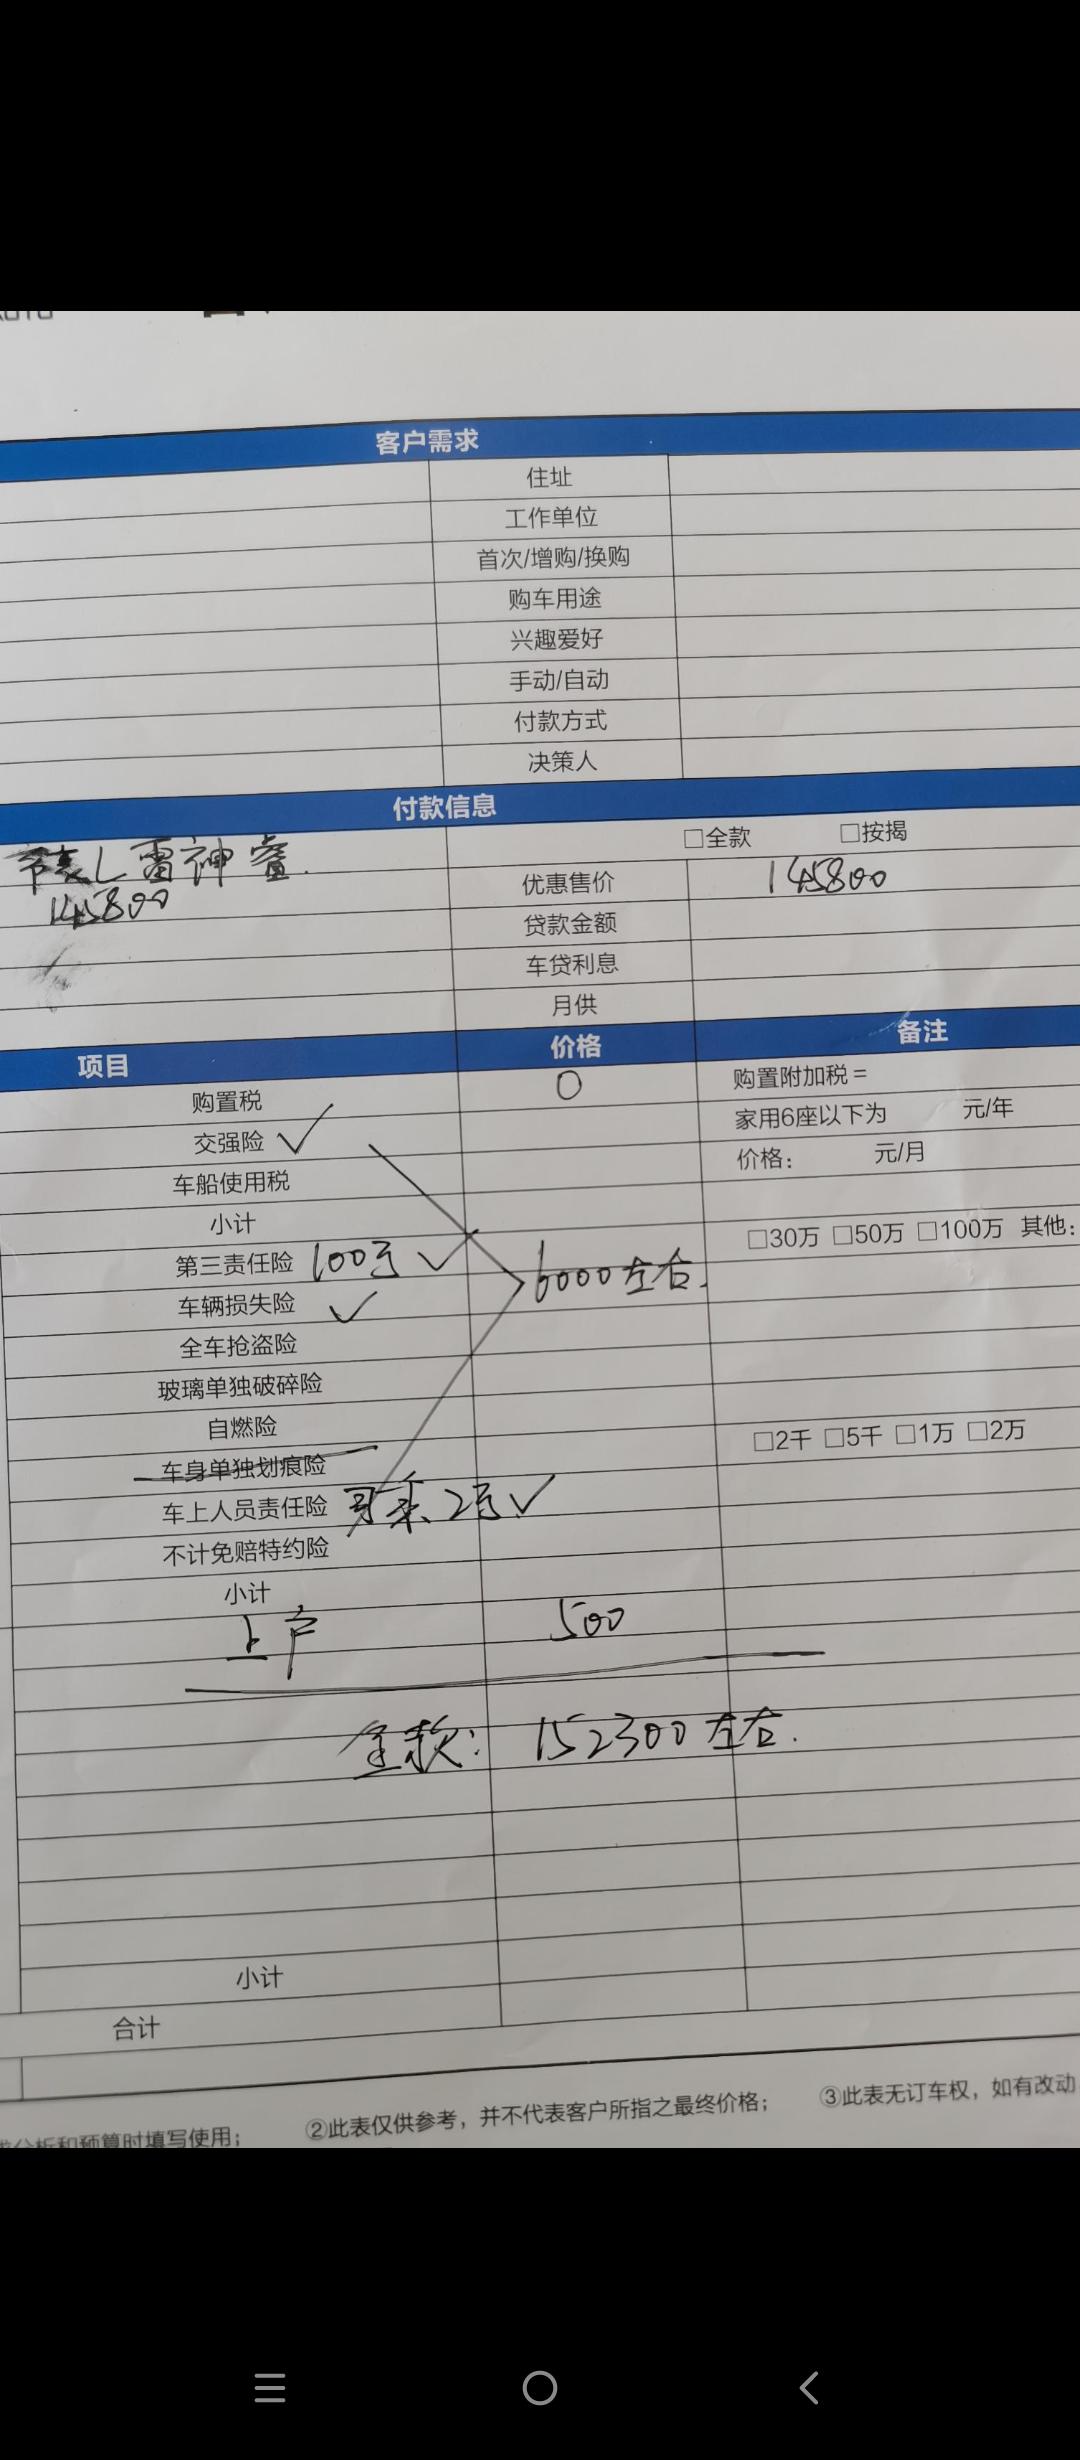 客户需求
住址
工作单位
首次/增购/换购
购车用途
兴趣爱好
手动/自动
付款方式
决策人
付款信息
L雷神
□全款 □按揭
145800
优惠售价 145800
贷款金额
车贷利息
月供
项目 价格 备注
购置税 0 购置附加税=
交强险 ✓ 家用6座以下为 元/年
车船使用税 价格: 元/月
小计
第三责任险 100万 ✓ 6000左右. □30万 □50万 □100万 其他:
车辆损失险 ✓
全车抢盗险
玻璃单独破碎险
自燃险
车身单独划痕险 □2千 □5千 □1万 □2万
车上人员责任险 2万 ✓
不计免赔特约险
小计
上户 500
全款: 152300左右.
小计
合计
分析和预算时填写使用; ②此表仅供参考，并不代表客户所指之最终价格; ③此表无订车权，如有改动